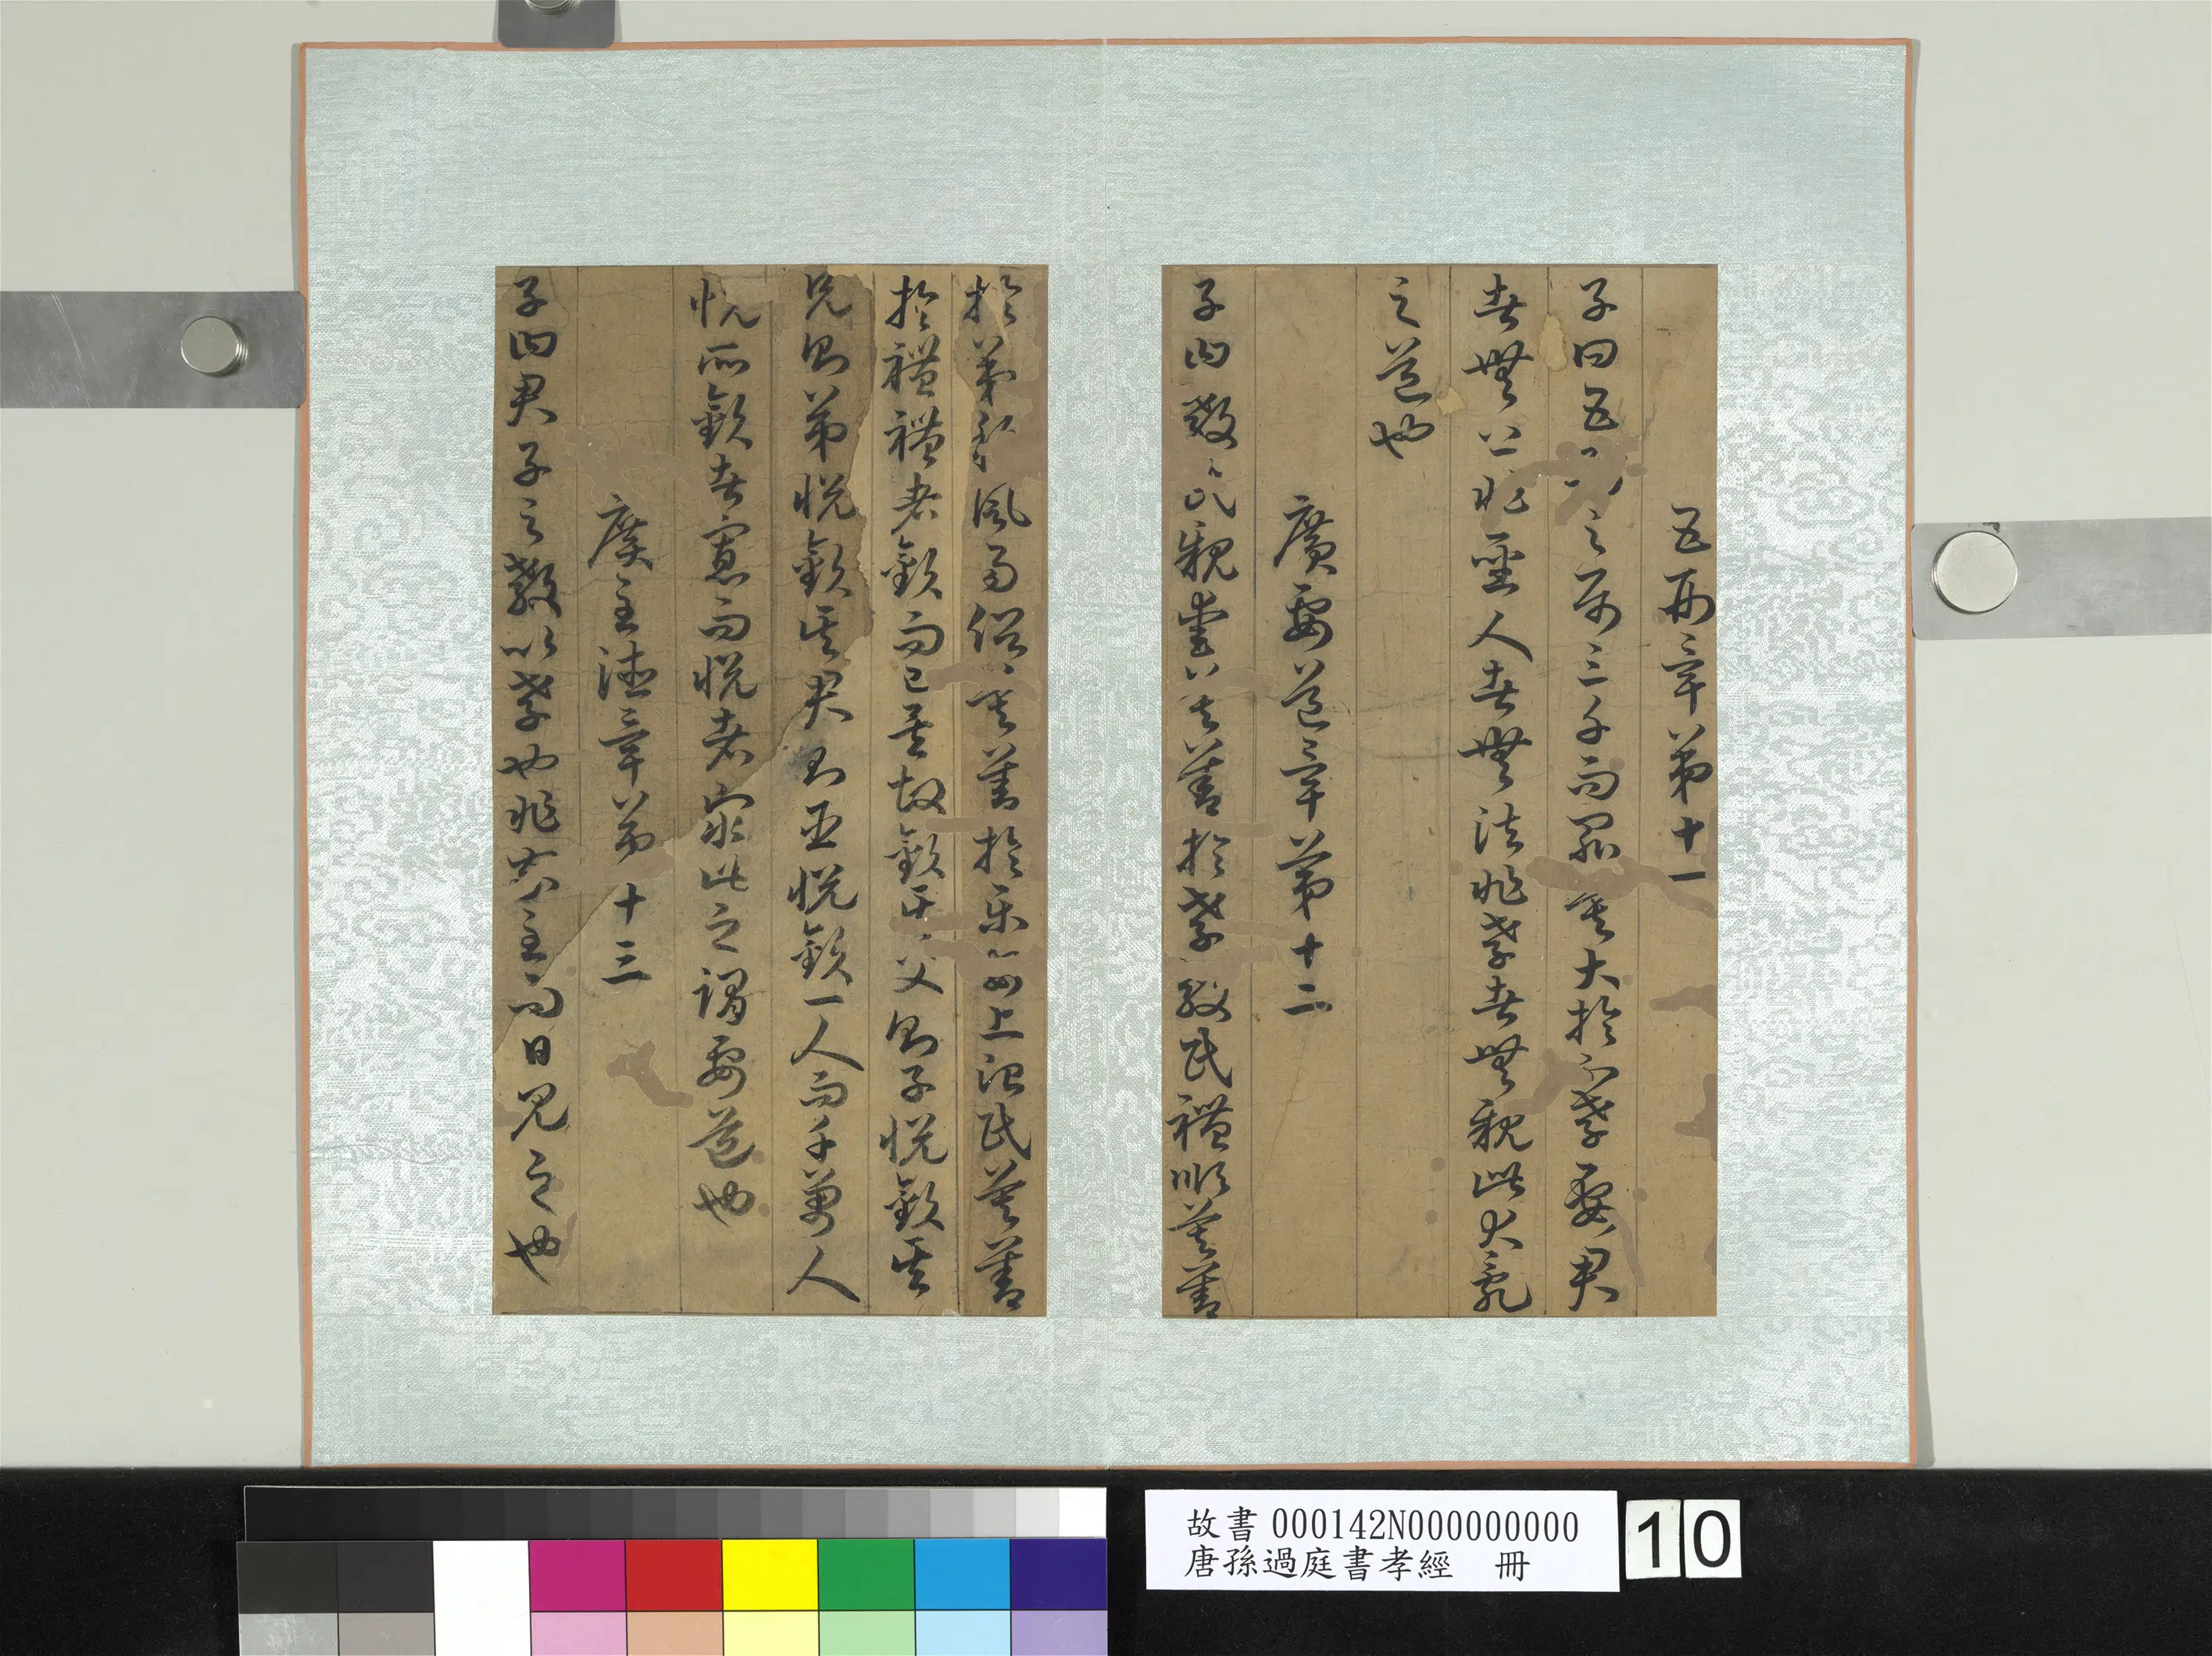 五刑章第十一
子曰五之屬三千而罪莫大於不孝要君
者無上非聖人者無法非孝者無親此大亂
之道也
廣要道章第十二
子曰教民親愛莫善於孝教民禮順莫善
於弟移風易俗莫善於樂安上治民莫善
於禮禮者敬而已矣故敬其父則子悅敬其
兄則弟悅敬其君則臣悅敬一人而千萬人
悅所敬者寡而悅者眾此之謂要道也
廣至德章第十三
子曰君子之教以孝也非家至而日見之也
故書000142N000000000
唐孫過庭書孝經 冊
10